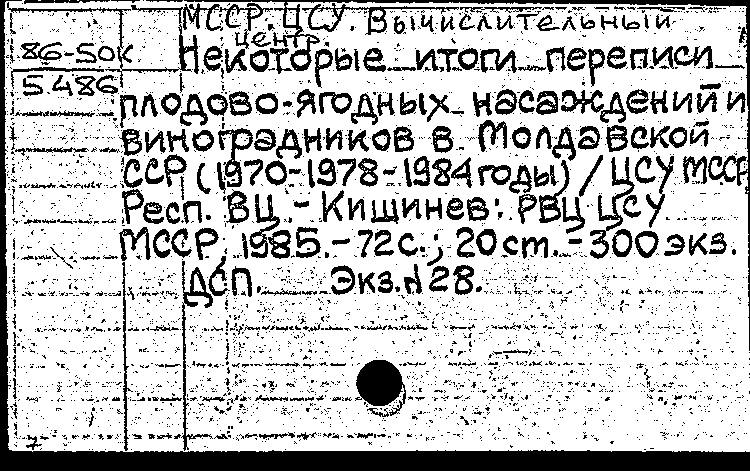 МССР. ЦСУ. Вычислительный
центр.
86-50к
Некоторые итоги переписи
5486
плодово-ягодных насаждений и
виноградников в Молдавской
ССР (1970-1978-1984 годы) / ЦСУ МССР,
Респ. ВЦ. - Кишинев: РВЦ ЦСУ
МССР, 1985. - 72 с.; 20 ст. - 300 экз.
ДСП. Экз. № 28.